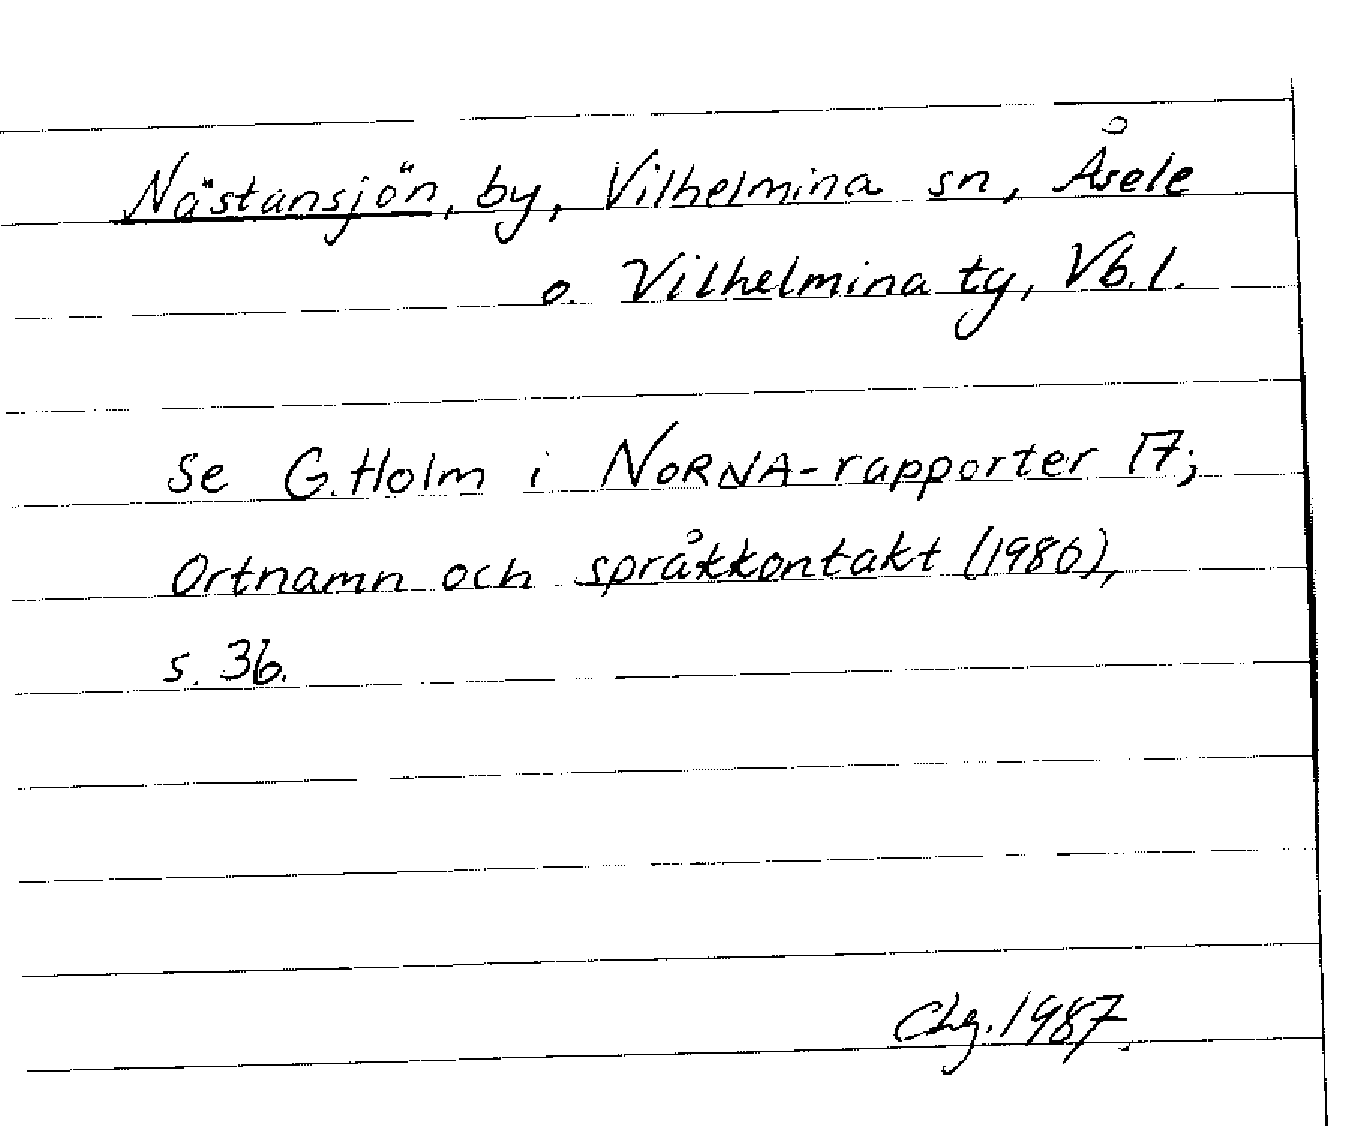 Nästansjön, by, Vilhelmina sn, Åsele
o. Vilhelmina ty, Vb. l.
Se G. Holm i NORNA-rapporter 17;
Ortnamn och språkkontakt (1980),
s. 36.
Chg. 1987.